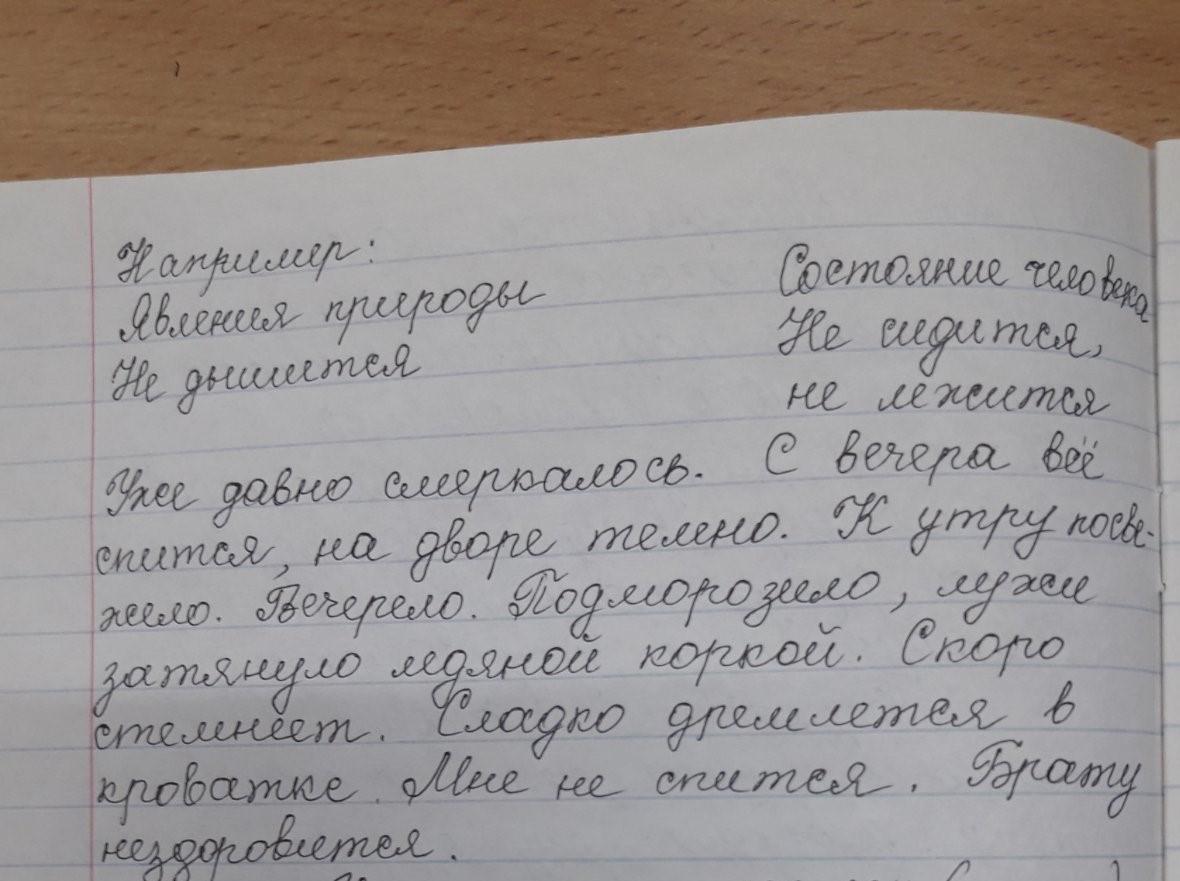 Например:
Явления природы
Состояние человека
Не дышится
Не сидится,
не лежится
Уже давно смеркалось. С вечера всё
спится, на дворе темно. К утру посве-
жело. Вечерело. Подморозило, лужи
затянуло ледяной коркой. Скоро
стемнеет. Сладко дремлется в
кроватке. Мне не спится. Брату
нездоровится.